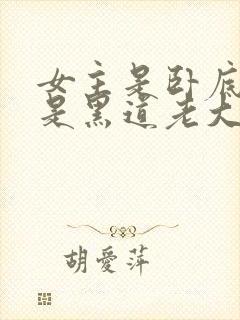 女主是卧底
是黑道老大
胡爱萍